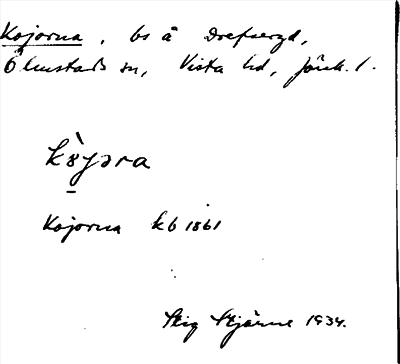 Kojorna, bs å Drefseryd,
Ölmstads sn, Vista hd, Jönk. l.
kojәra
Kojorna kb 1861
Stig Stjärne 1934.